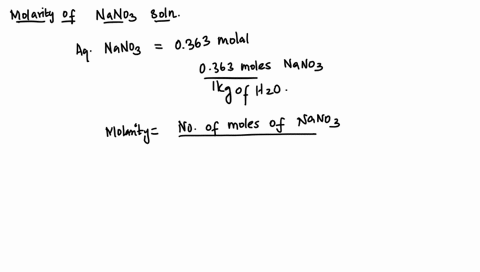 Molarity of NaNO3 Soln.
Aq. NaNO3 = 0.363 molal
0.363 moles NaNO3
1kg of H2O.
Molarity = No. of moles of NaNO3